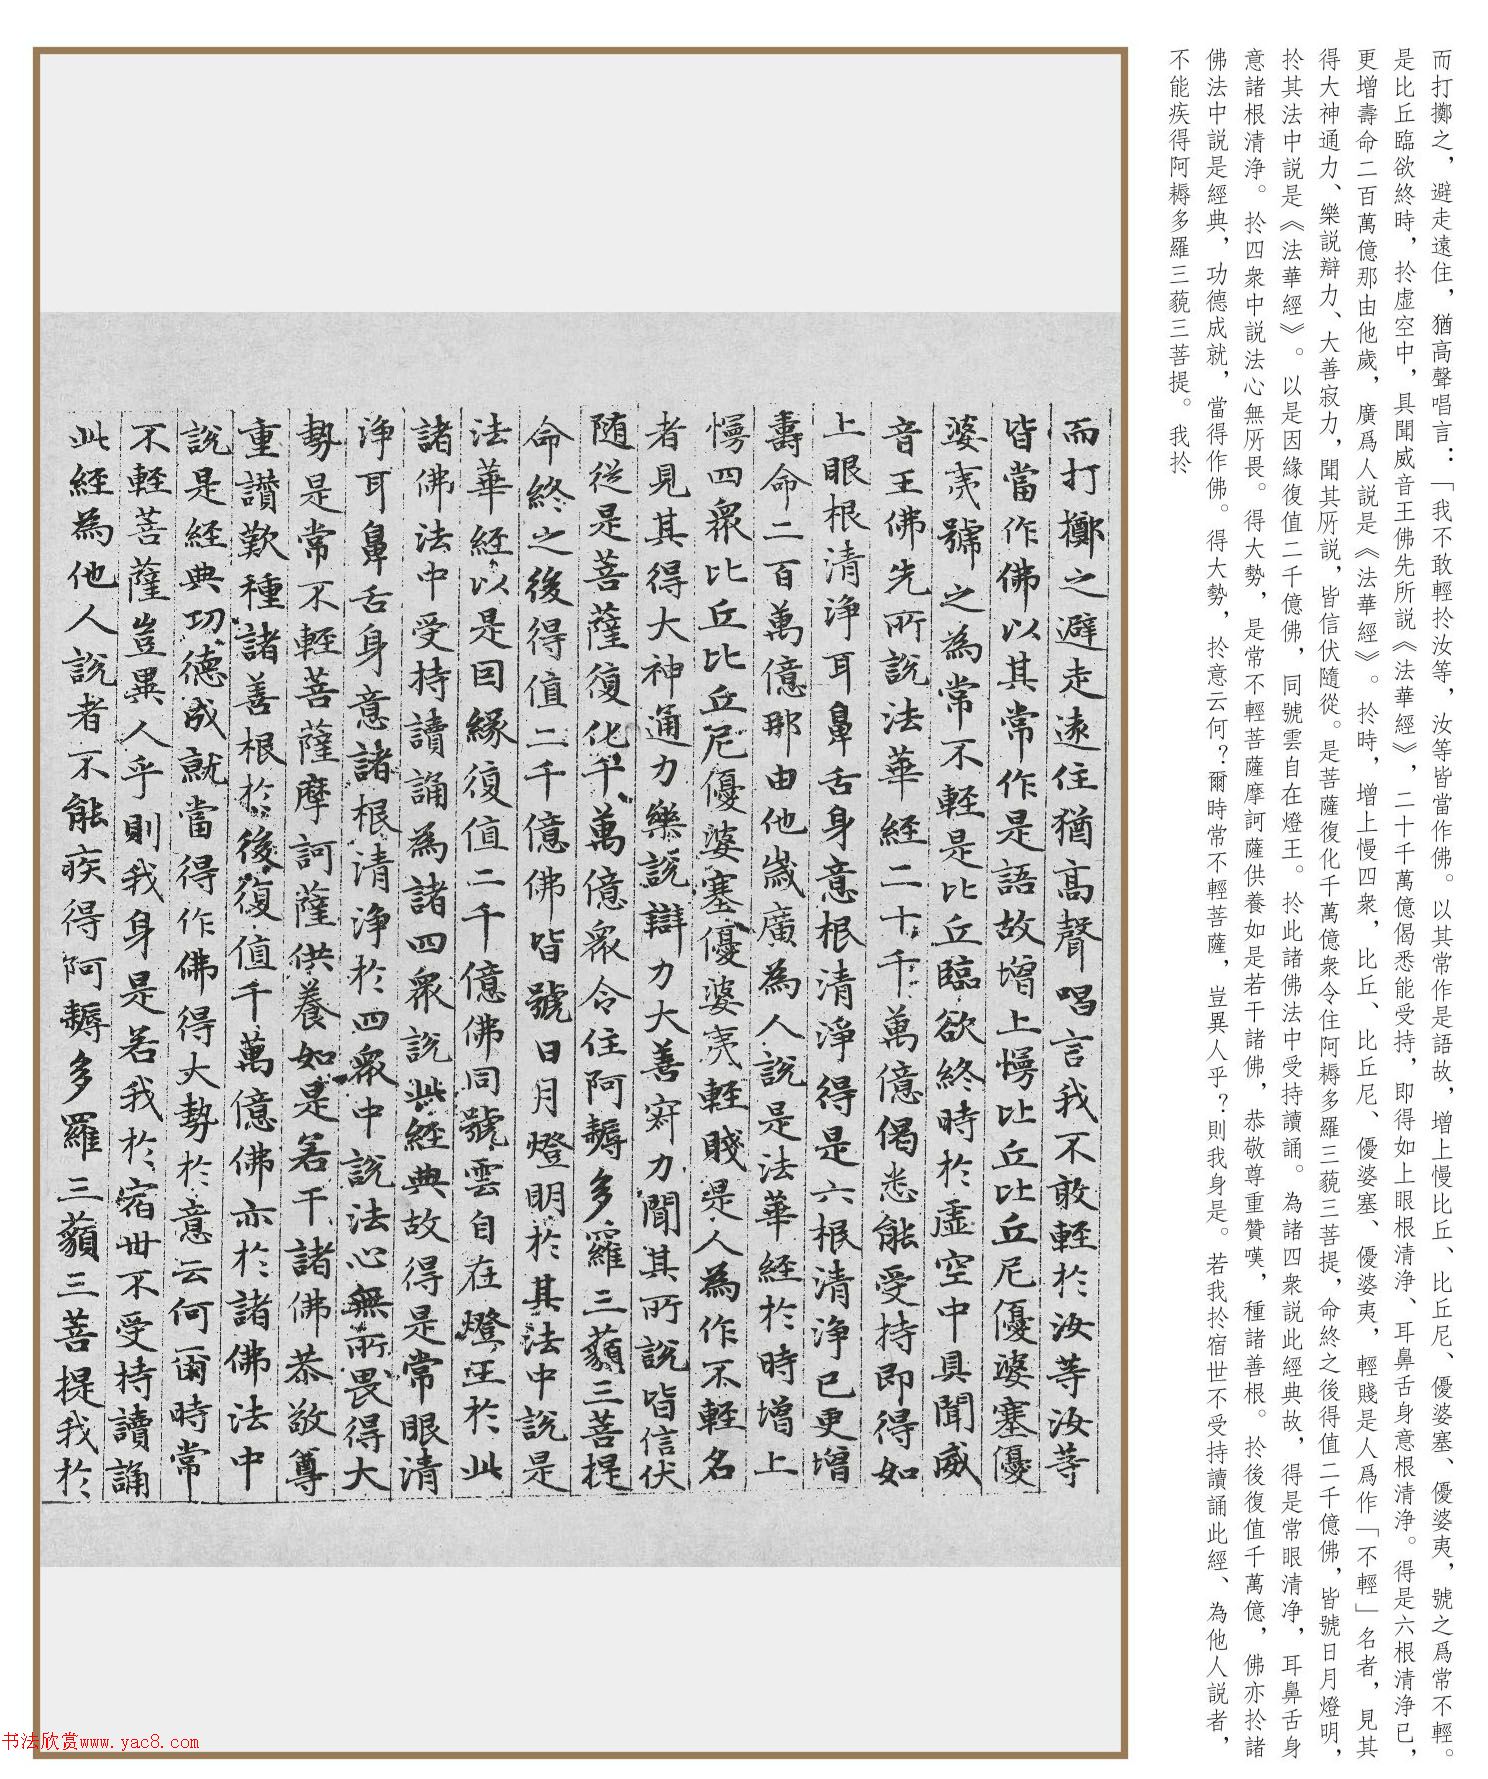 而打擲之，避走遠住，猶高聲唱言：「我不敢輕扵汝等，汝等皆當作佛。以其常作是語故，增上慢比丘、比丘尼、優婆塞、優婆夷，號之爲常不輕。
是比丘臨欲終時，扵虛空中，具聞威音王佛先所説《法華經》，二十千萬億偈悉能受持，即得如上眼根清浄、耳鼻舌身意根清浄。得是六根清浄已，
更增壽命二百萬億那由他歲，廣爲人説是《法華經》。扵時，增上慢四衆，比丘、比丘尼、優婆塞、優婆夷，輕賤是人爲作「不輕」名者，見其
得大神通力、樂説辯力、大善寂力，聞其所説，皆信伏隨從。是菩薩復化千萬億衆令住阿耨多羅三藐三菩提，命終之後得值二千億佛，皆號日月燈明，
扵其法中説是《法華經》。以是因緣復值二千億佛，同號雲自在燈王。扵此諸佛法中受持讀誦。為諸四衆説此經典故，得是常眼清浄，耳鼻舌身
意諸根清浄。扵四衆中説法心無所畏。得大勢，是常不輕菩薩摩訶薩供養如是若干諸佛，恭敬尊重贊嘆，種諸善根。扵後復值千萬億，佛亦扵諸
佛法中説是經典，功德成就，當得作佛。得大勢，扵意云何？爾時常不輕菩薩，豈異人乎？則我身是。若我扵宿世不受持讀誦此經、為他人説者，
不能疾得阿耨多羅三藐三菩提。我扵
而打擲之避走遠住猶高聲唱言我不敢輕扵汝等汝等
皆當作佛以其常作是語故增上慢比丘比丘尼優婆塞優
婆夷號之為常不輕是比丘臨欲終時扵虛空中具聞威
音王佛先所說法華經二十千萬億偈悉能受持即得如
上眼根清淨耳鼻舌身意根清淨得是六根清淨已更增
壽命二百萬億那由他歲廣為人說是法華經扵時增上
慢四衆比丘比丘尼優婆塞優婆夷輕賤是人為作不輕名
者見其得大神通力樂說辯力大善寂力聞其所說皆信伏
随從是菩薩復化千萬億衆令住阿耨多羅三藐三菩提
命終之後得值二千億佛皆號日月燈明扵其法中說是
法華經以是因緣復值二千億佛同號雲自在燈王扵此
諸佛法中受持讀誦為諸四衆說此經典故得是常眼清
淨耳鼻舌身意諸根清淨扵四衆中說法心無所畏得大
勢是常不輕菩薩摩訶薩供養如是若干諸佛恭敬尊
重讚歎種諸善根扵後復值千萬億佛亦扵諸佛法中
說是經典功德成就當得作佛得大勢扵意云何爾時常
不輕菩薩豈異人乎則我身是若我扵宿世不受持讀誦
此經為他人說者不能疾得阿耨多羅三藐三菩提我扵
书法欣赏www.yac8.com